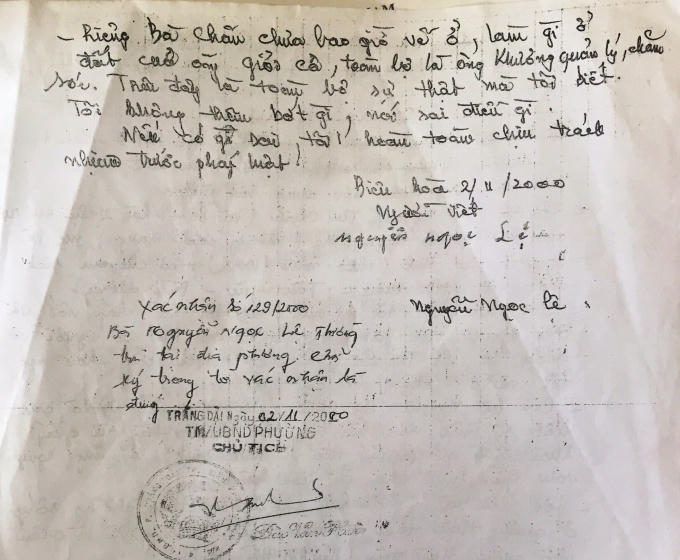 - Riêng Bà Chẩn chưa bao giờ về ở, làm gì ở
đất của ông giỏi cả, toàn bộ là ông Khưởng quản lý, chăm
sóc. Trên đây là toàn bộ sự thật mà tôi biết.
Tôi không thêm bớt gì, nói sai điều gì.
Nếu có gì sai, tôi hoàn toàn chịu trách
nhiệm trước pháp luật!
Biên hòa 2/11/2000
Người viết
Nguyễn Ngọc Lệ
Xác nhận số 129/2000
Nguyễn Ngọc Lệ
Bà Nguyễn Ngọc Lệ Thường
trú tại địa phương chữ
ký trong tờ xác nhận là
đúng
TRẢNG DÀI Ngày 02/11/2000
TM/UBND PHƯỜNG
CHỦ TỊCH